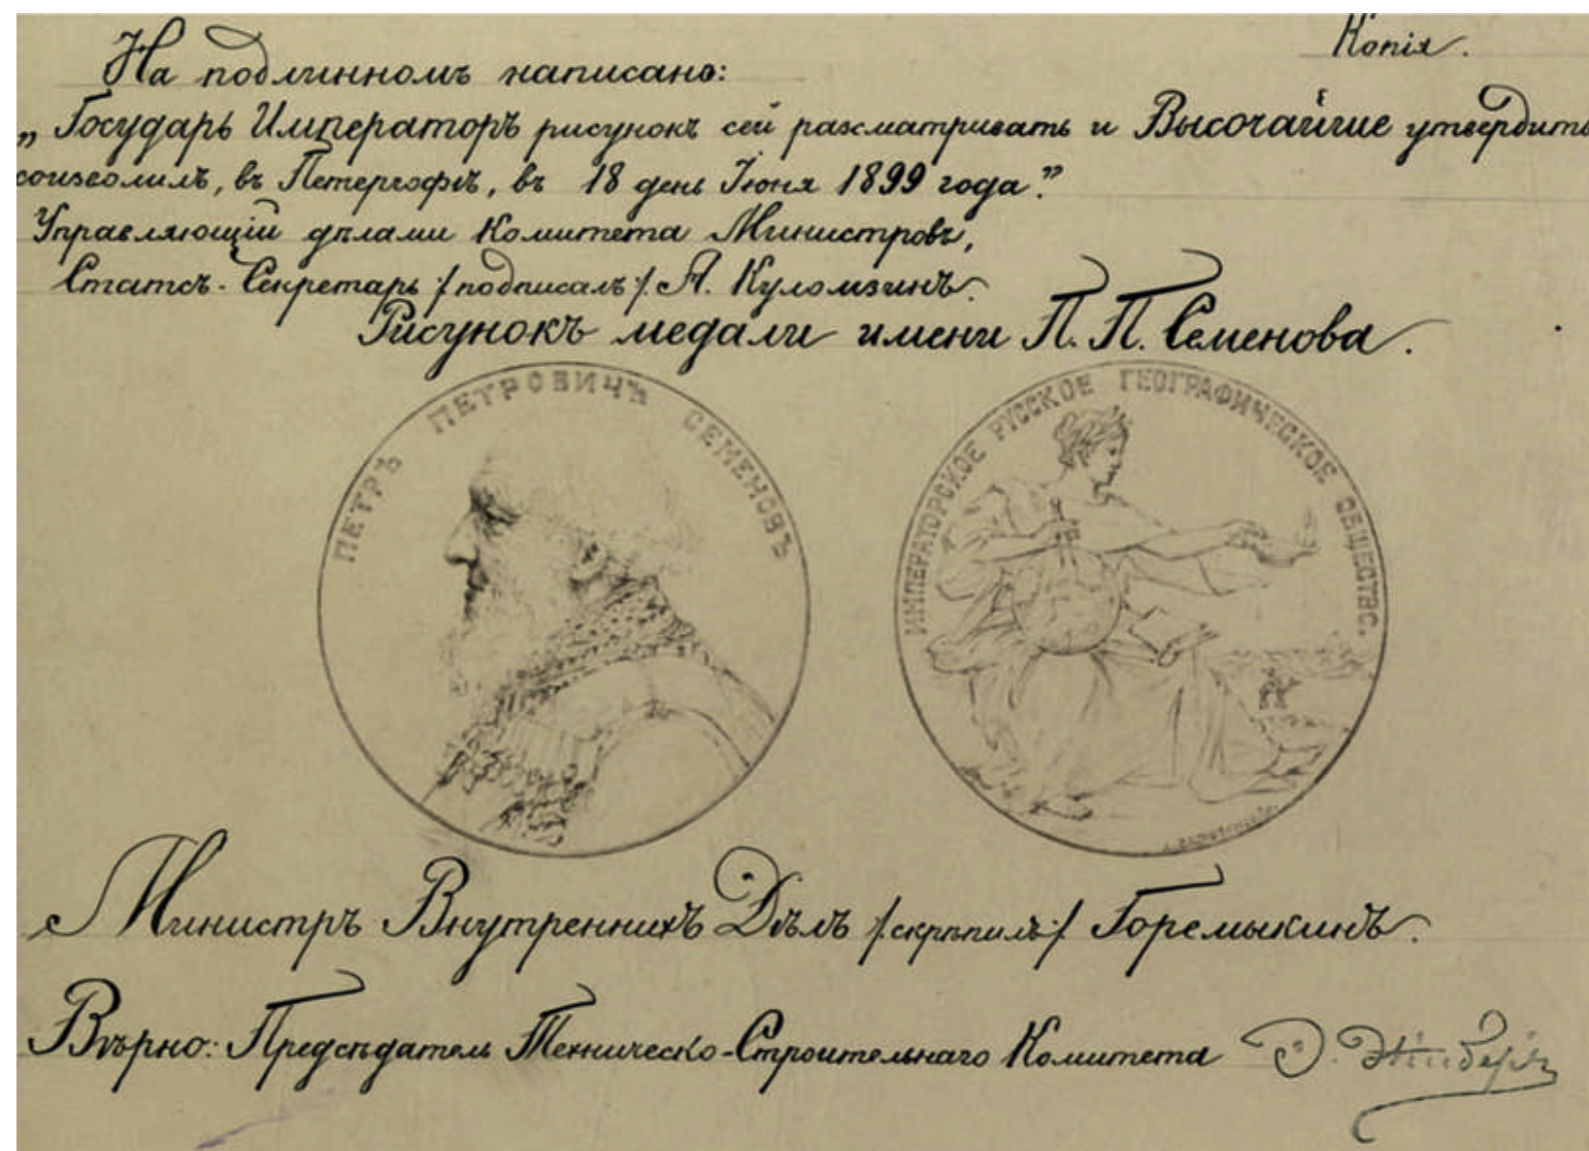 Копія.
На подлинномъ написано:
„Государь Императоръ рисунокъ сей разсматривать и Высочайше утвердить
соизволилъ, въ Петергофѣ, въ 18 день Іюня 1899 года."
Управляющій дѣлами Комитета Министровъ,
Статсъ-Секретарь /подписалъ/. А. Куломзинъ.
Рисунокъ медали имени П. П. Семенова.
ПЕТРЪ ПЕТРОВИЧЪ СЕМЕНОВЪ
ИМПЕРАТОРСКОЕ РУССКОЕ ГЕОГРАФИЧЕСКОЕ ОБЩЕСТВО.
Министръ Внутреннихъ Дѣлъ /скрѣпилъ/ Горемыкинъ.
Вѣрно: Предсѣдатель Техническо-Строительнаго Комитета